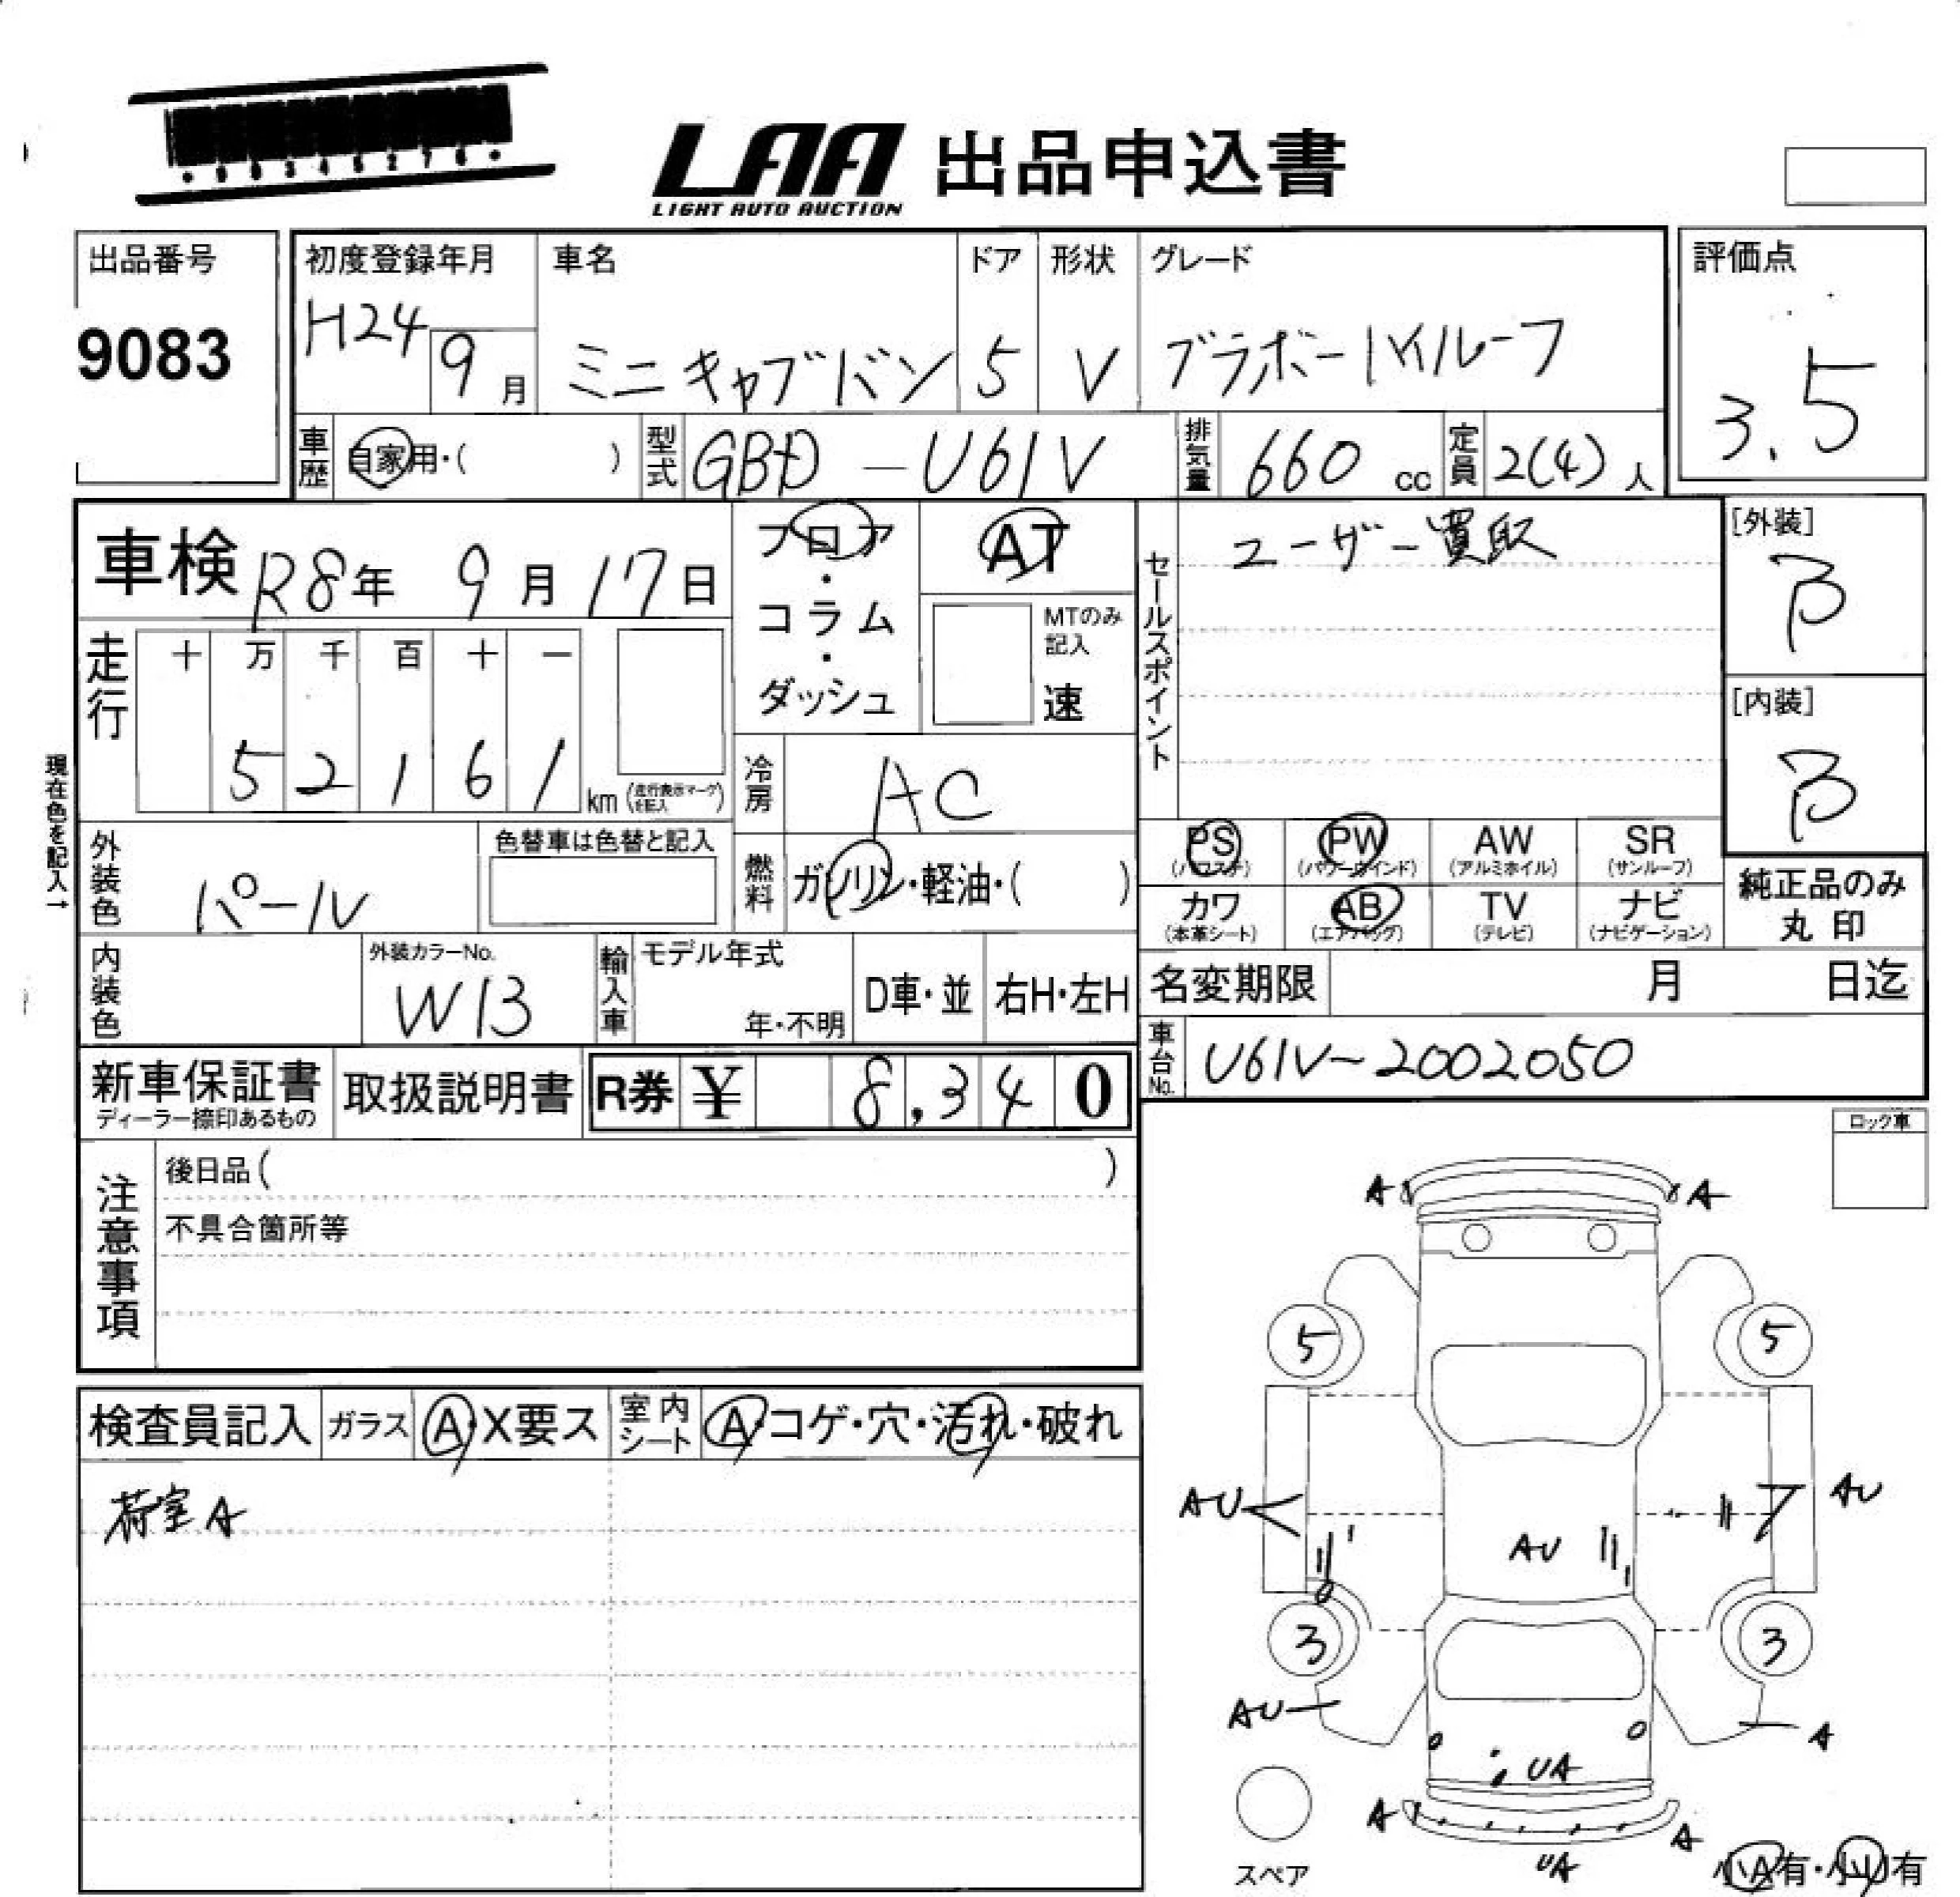 LAA 出品申込書
LIGHT AUTO AUCTION
出品番号
9083
初度登録年月
H24
9月
車名
ミニキャブバン
ドア
5
形状
V
グレード
ブラボーハイルーフ
評価点
3.5
車歴
自家用・( )
型式
GBD-U61V
排気量
660 cc
定員
2(4)人
車検 R8年 9月 17日
走行
十 万 千 百 十 一
5 2 1 6 1
km (走行表示マークを記入)
現在色を記入→
フロア・コラム・ダッシュ
AT
MTのみ記入
速
冷房
AC
燃料
ガソリン・軽油・( )
セールスポイント
ユーザー買取
[外装]
B
[内装]
B
外装色
パール
色替車は色替と記入
内装色
外装カラーNo.
W13
輸入車
モデル年式
年・不明
D車・並
右H・左H
PS
(パワステ)
PW
(パワーウインド)
AW
(アルミホイル)
SR
(サンルーフ)
カワ
(本革シート)
AB
(エアバッグ)
TV
(テレビ)
ナビ
(ナビゲーション)
純正品のみ
丸印
名変期限 月 日迄
車台No.
U61V-2002050
新車保証書
ディーラー捺印あるもの
取扱説明書
R券 ¥ 8,340
注意事項
後日品( )
不具合箇所等
ロック車
検査員記入
ガラス
A・X要ス
室内シート
A・コゲ・穴・汚れ・破れ
荷室A
A
A
5
5
AU
AU
AU
3
3
AU
A
UA
A
A
UA
スペア
小A有・小U有